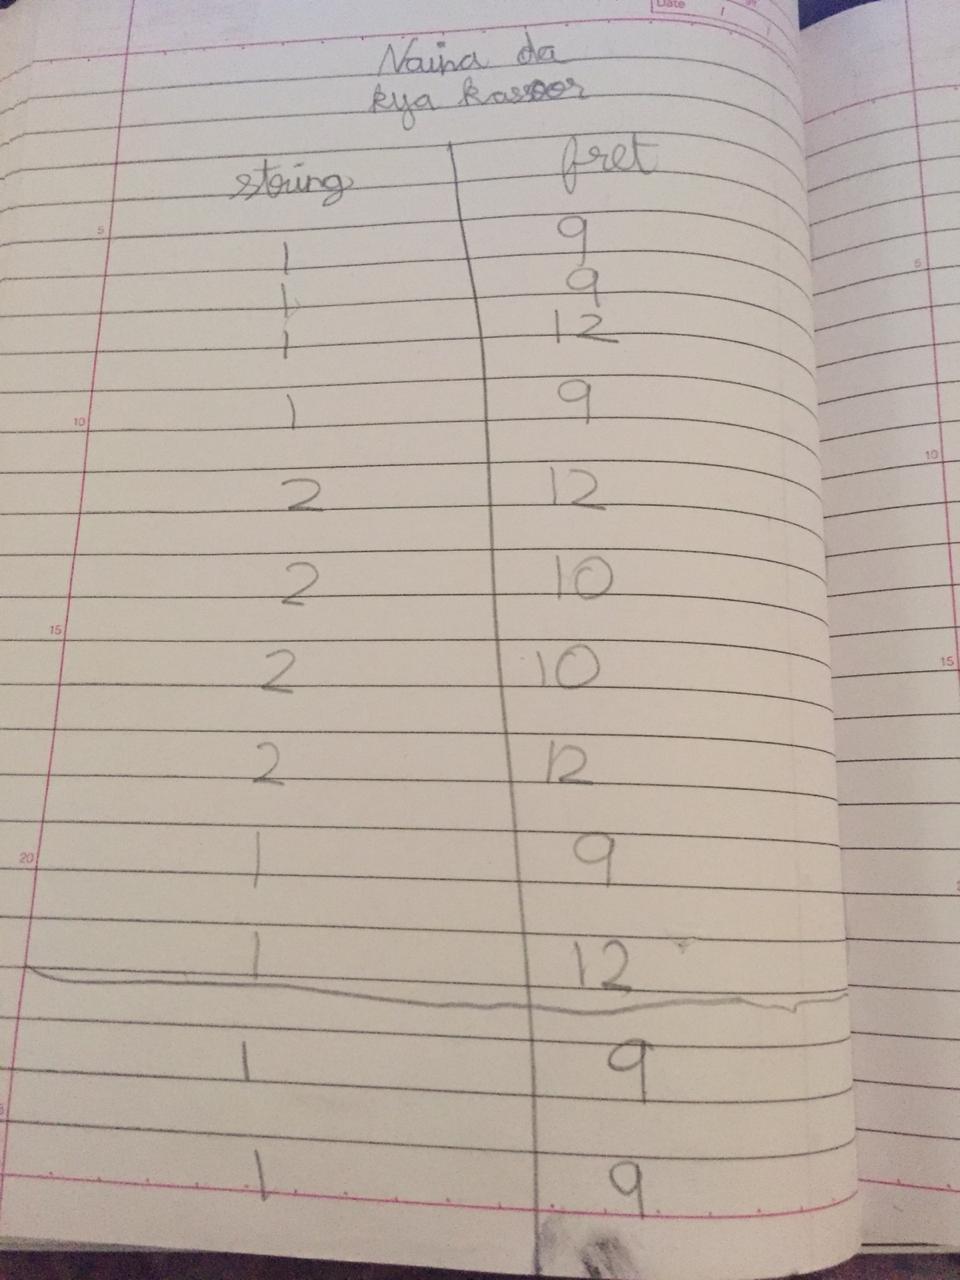 Date
Naina da
kya kasoor
string fret
5
1 9
1 9
1 12
1 9
10
2 12
2 10
15
2 10
2 12
1 9
20
1 12
1 9
1 9
5
10
15